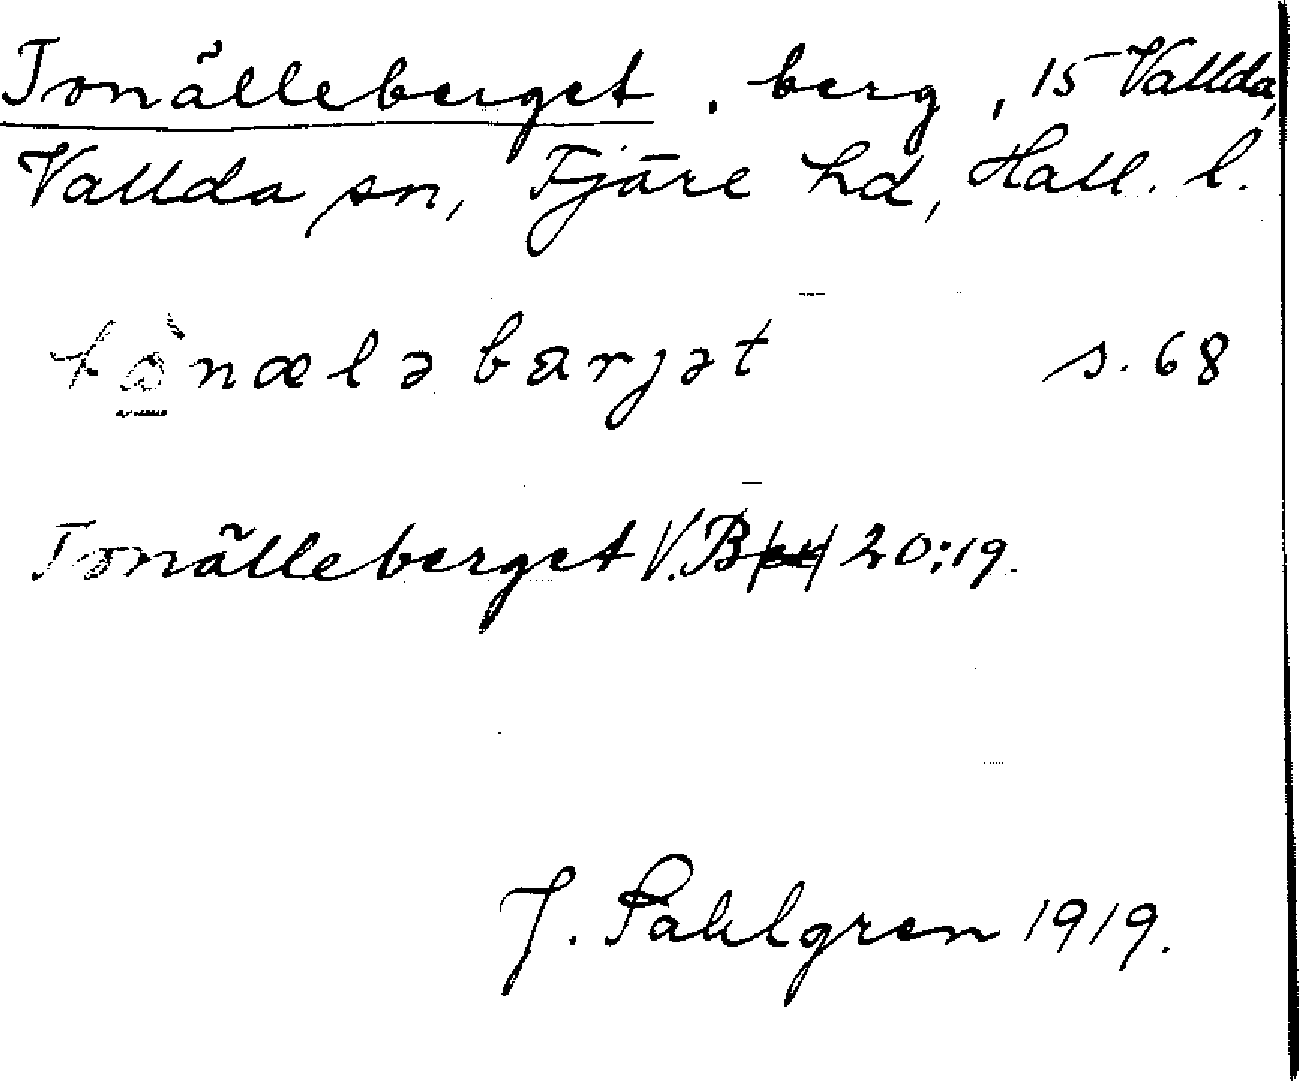 Tonälleberget, berg, 15 Vallda,
Vallda sn, Fjäre hd, Hall. l.
tὼnælə bærjət s. 68
Tonälleberget V.B. 20:19.
J. Sahlgren 1919.